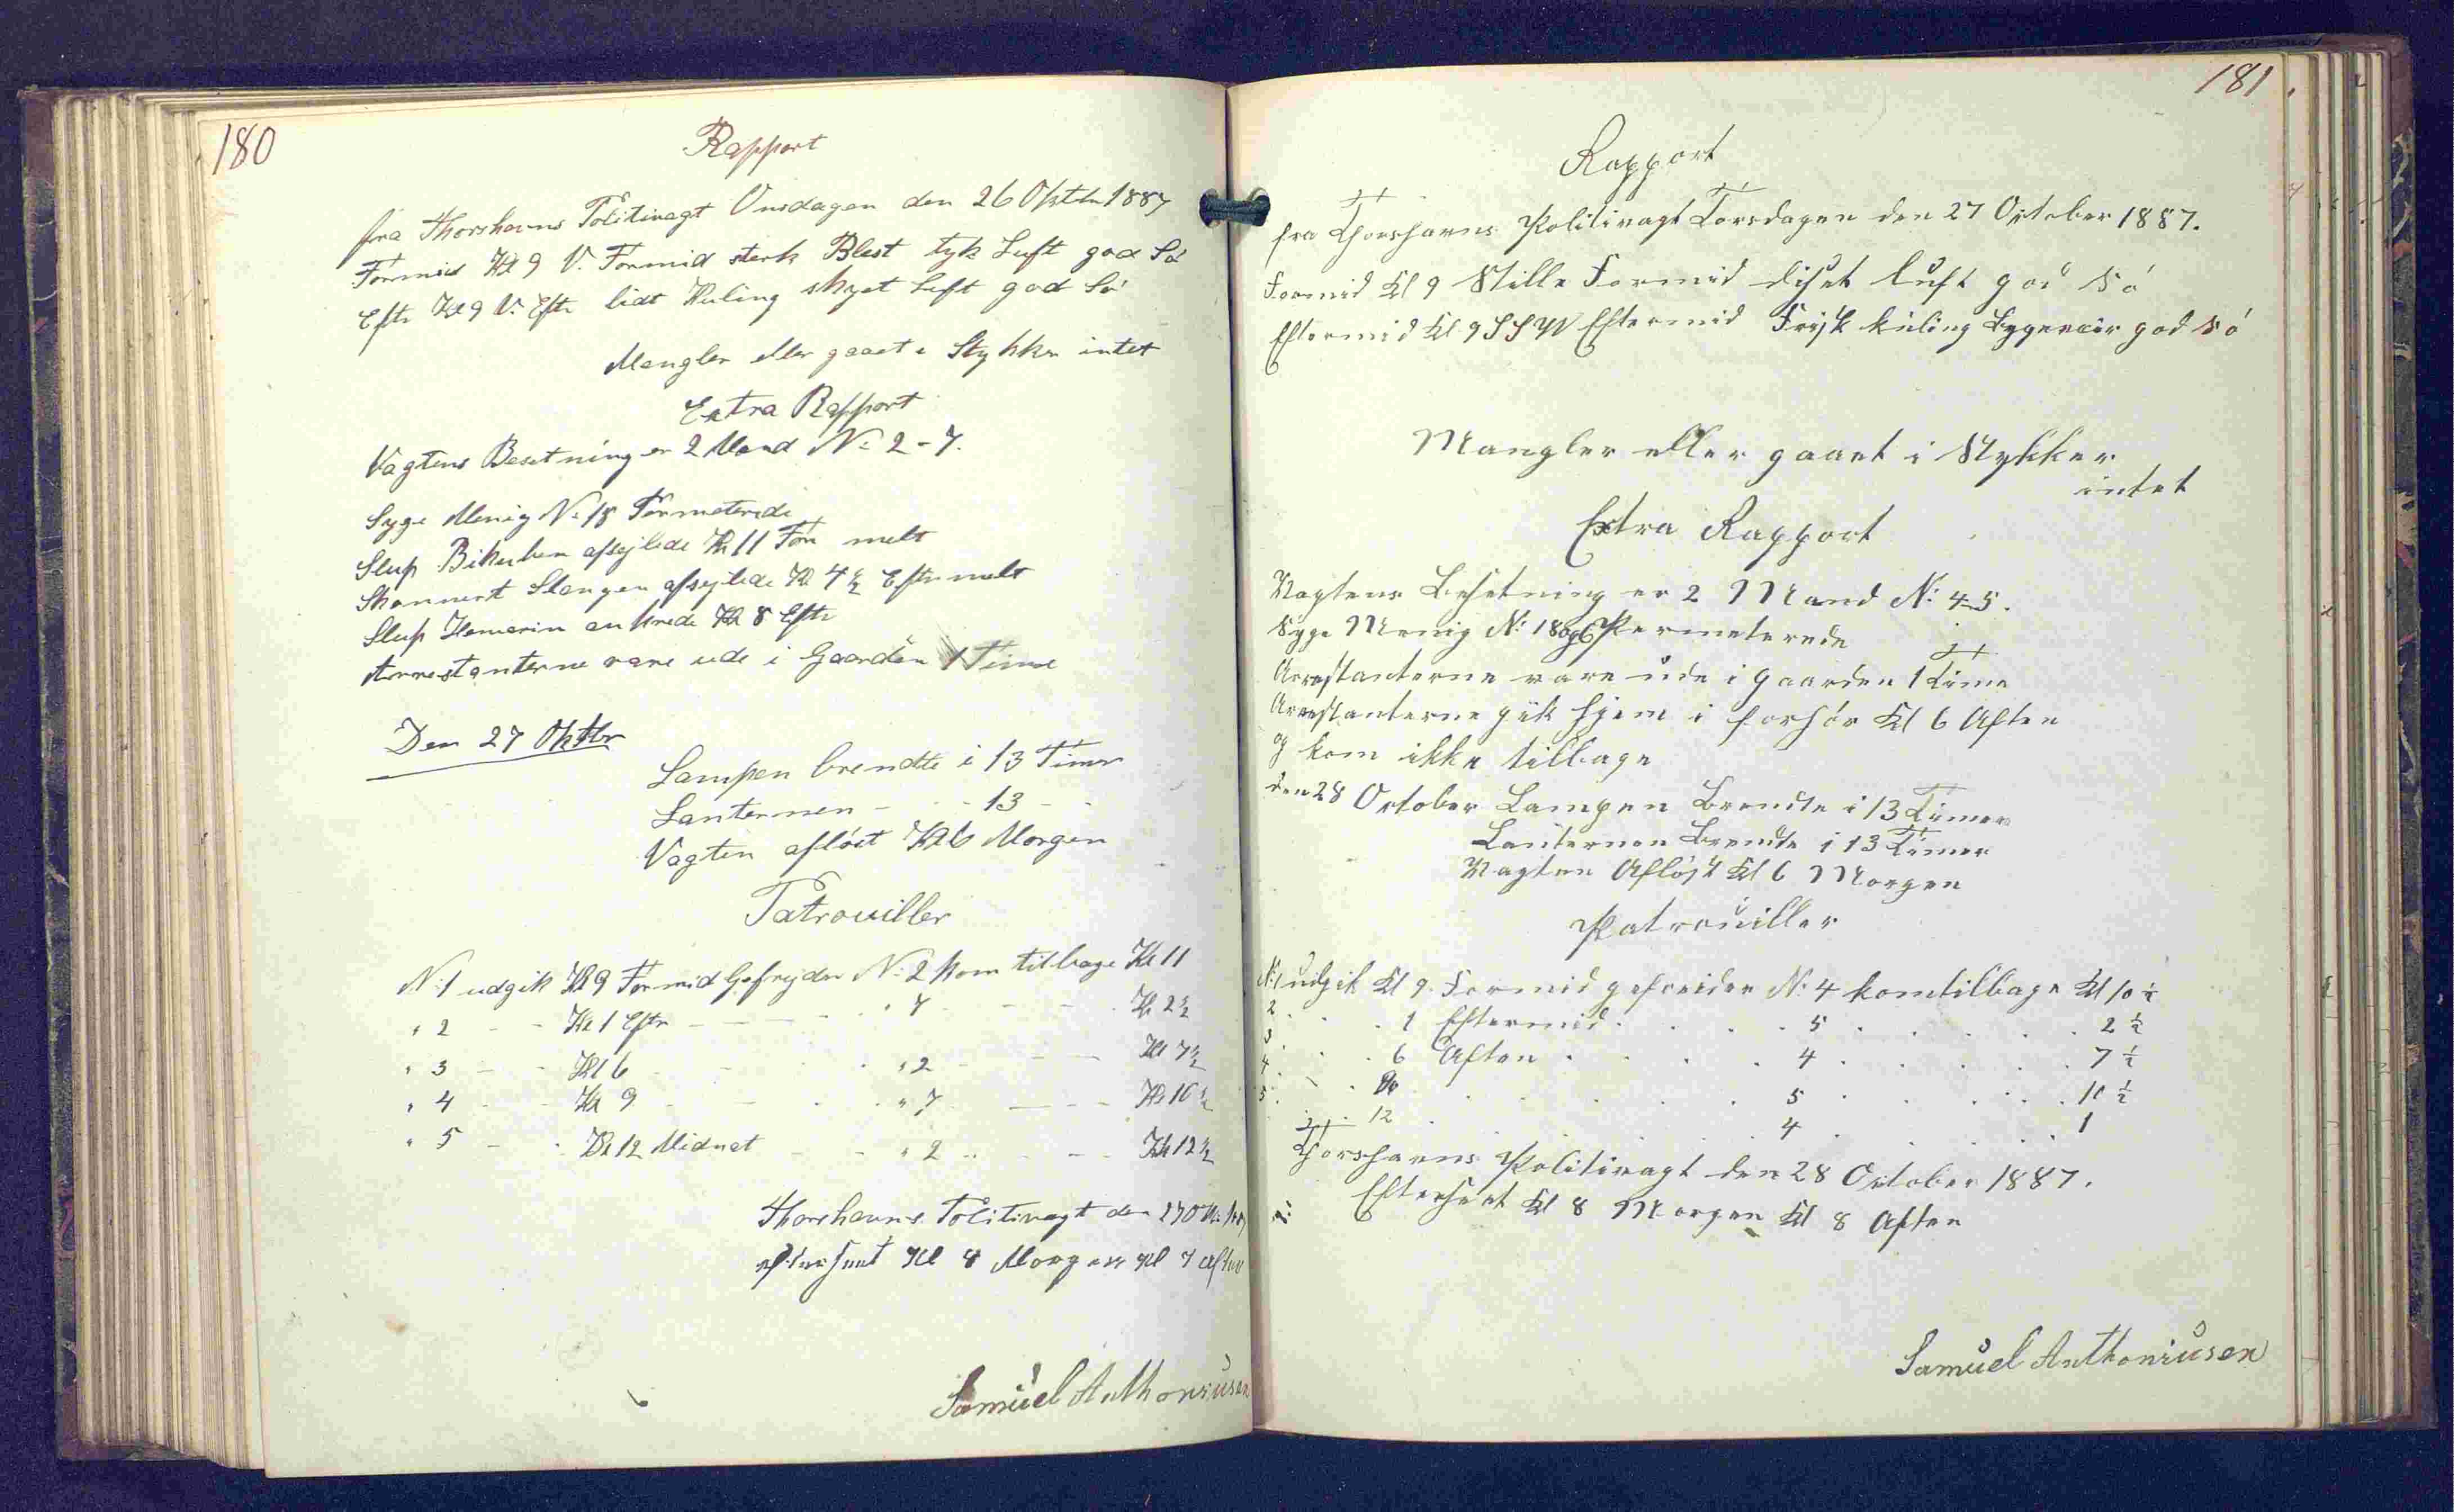 180
Rapport
fra Thorshavns Politivagt Onsdagen den 26 Oktbr 1887
Formid Kl 9 V. Formid sterk Blest tyk Luft god Sö
Eftr Kl 9 V. Eftr lidt Kuling skyet Luft god Sö
Mangler eller gaaet i Stykker intet
Extra Rapport
Vagtens Besetning er 2 Mand No 2-7.
Syge Menig No 18 Permeterede
Slup Bikuben afsejlede Kl 11 For melt
Skonnert Slangen afsejlede Kl 4½ Eftr melt
Slup ankrede Kl 8 Eftr
Arrestanterne vare ude i Gaarden 1 Time
Den 27 Oktbr
Lampen brendte i 13 Timer
Lanternen - - 13 -
Vagten aflöst Kl 6 Morgen
Patrouiller
N: 1 udgik Kl 9 Formid Gefrejder N: 2 kom tilbage Kl 11
" 2 - - Kl 1 Eftr - - - " 7 - - - Kl 2½
" 3 - - Kl 6 - - - " 2 - - Kl 7½
" 4 - - Kl 9 - - - " 7 - - - Kl 10½
" 5 - - Kl 12 Midnat - - " 2 - - - Kl 12½
Thorshavns Politivagt den 27 Okt
efterseet Kl 8 Morgen Kl 7 Aften
Samuel Anthoniusen
181.
Rapport
fra Thorshavns Politivagt Torsdagen den 27 October 1887.
Formid Kl 9 Stille Formid diset luft god Sö
Eftermid Kl 9 SSW Eftermid Frisk kuling Bygeveir god Sö
Mangler eller gaaet i Stykker
intet
Extra Rapport
Vagtens Besetning er 2 Mand N: 4-5.
Syge Menig N: 18 og 6 Permeterede
Arrestanterne vare ude i gaarden 1 Time
Arrestanterne gik hjem i forhör Kl 6 Aften
og kom ikke tilbage
den 28 October Lampen Brendte i 13 Timer
Lanternen Brendte i 13 Timer
Vagten Aflöst Kl 6 Morgen
Patrouiller
N: 1 udgik Kl 9 Formid gefreider N: 4 kom tilbage Kl 10½
2 . . . 1 Eftermid . . . 5 . . . 2½
3 . . . 6 Aften . . . 4 . . . 7½
4 . . . 9 . . . 5 . . . 10½
5 . . . 12 . . . 4 . . . 1
Thorshavns Politivagt den 28 October 1887.
Efterseet Kl 8 Morgen Kl 8 Aften
Samuel Anthoniusen